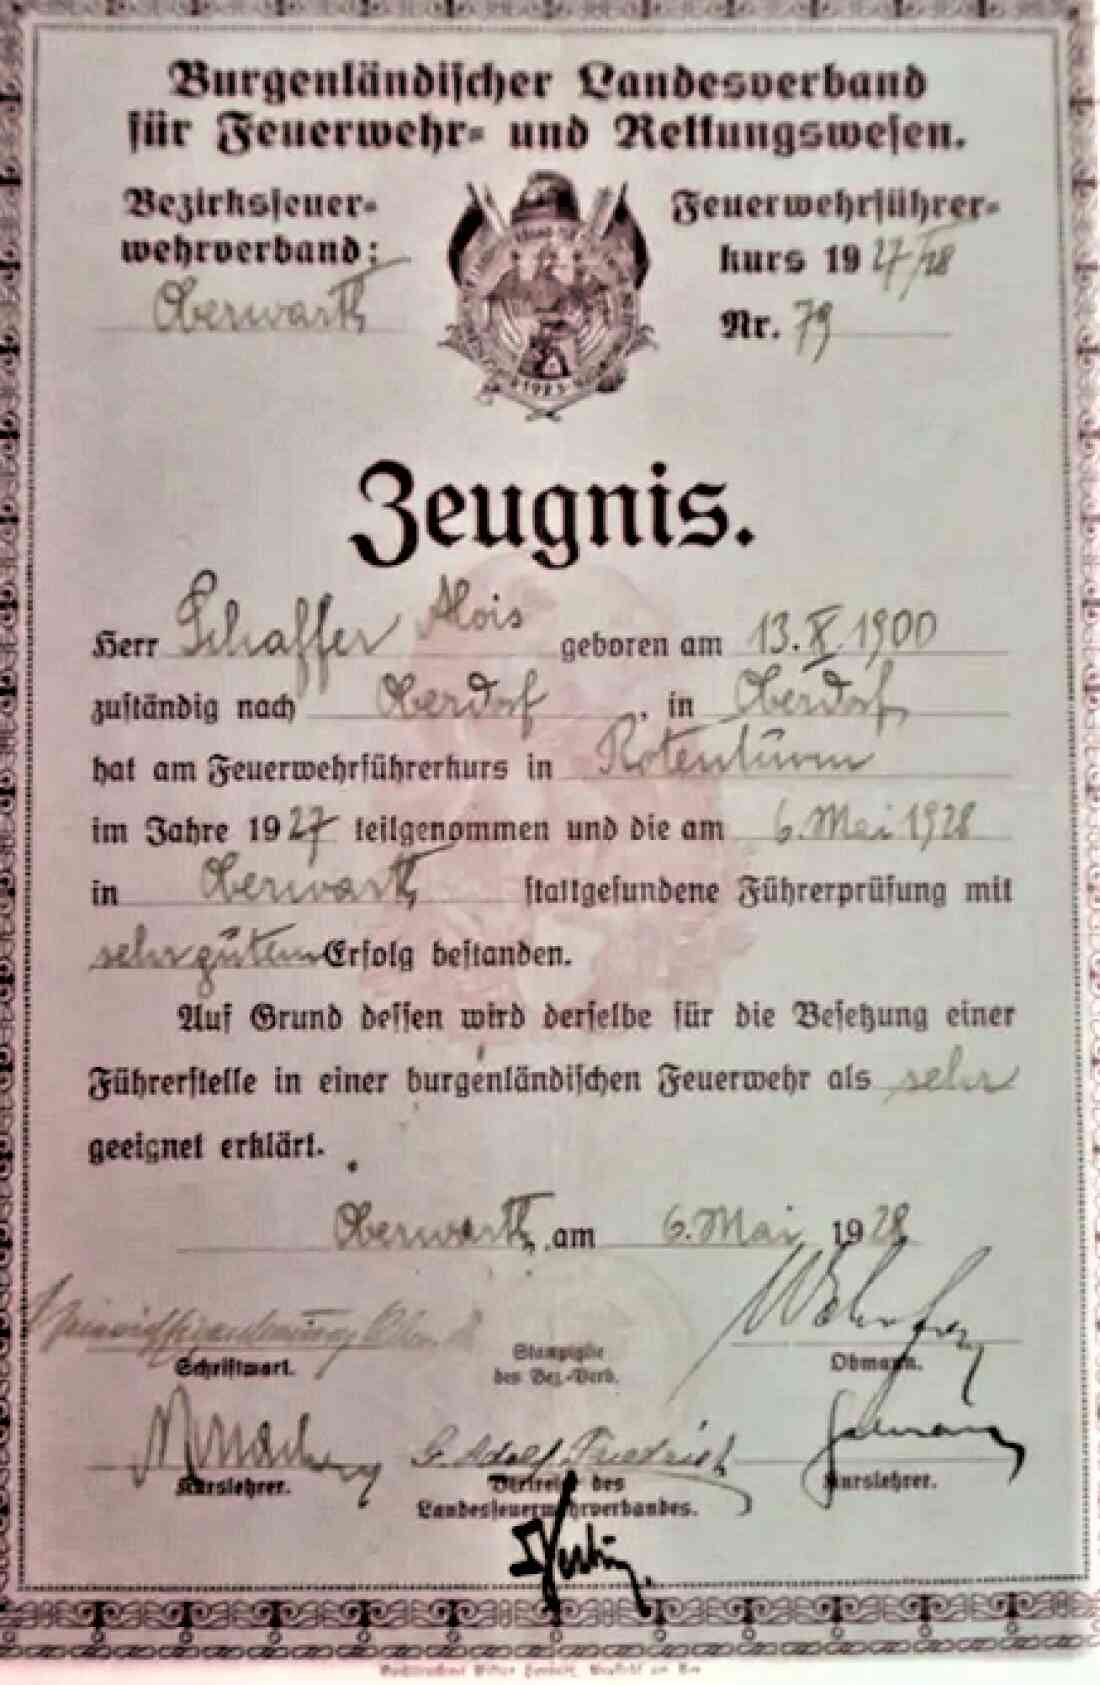 Burgenländischer Landesverband
für Feuerwehr- und Rettungswesen.
Bezirksfeuer-
wehrverband:
Oberwarth
Feuerwehrführer-
kurs 1927/28
Nr. 79
1923
Zeugnis.
Herr Schaffer Alois geboren am 13.X.1900
zuständig nach Oberdorf, in Oberdorf
hat am Feuerwehrführerkurs in Rotenturm
im Jahre 1927 teilgenommen und die am 6. Mai 1928
in Oberwarth stattgefundene Führerprüfung mit
sehr gutem Erfolg bestanden.
Auf Grund dessen wird derselbe für die Besetzung einer
Führerstelle in einer burgenländischen Feuerwehr als sehr
geeignet erklärt.
Oberwarth, am 6. Mai 1928
Schriftwart.
Stampiglie
des Bez.-Verb.
Obmann.
G. Adolf Friedrich
Kurslehrer.
Vertreter des
Landesfeuerwehrverbandes.
Kurslehrer.